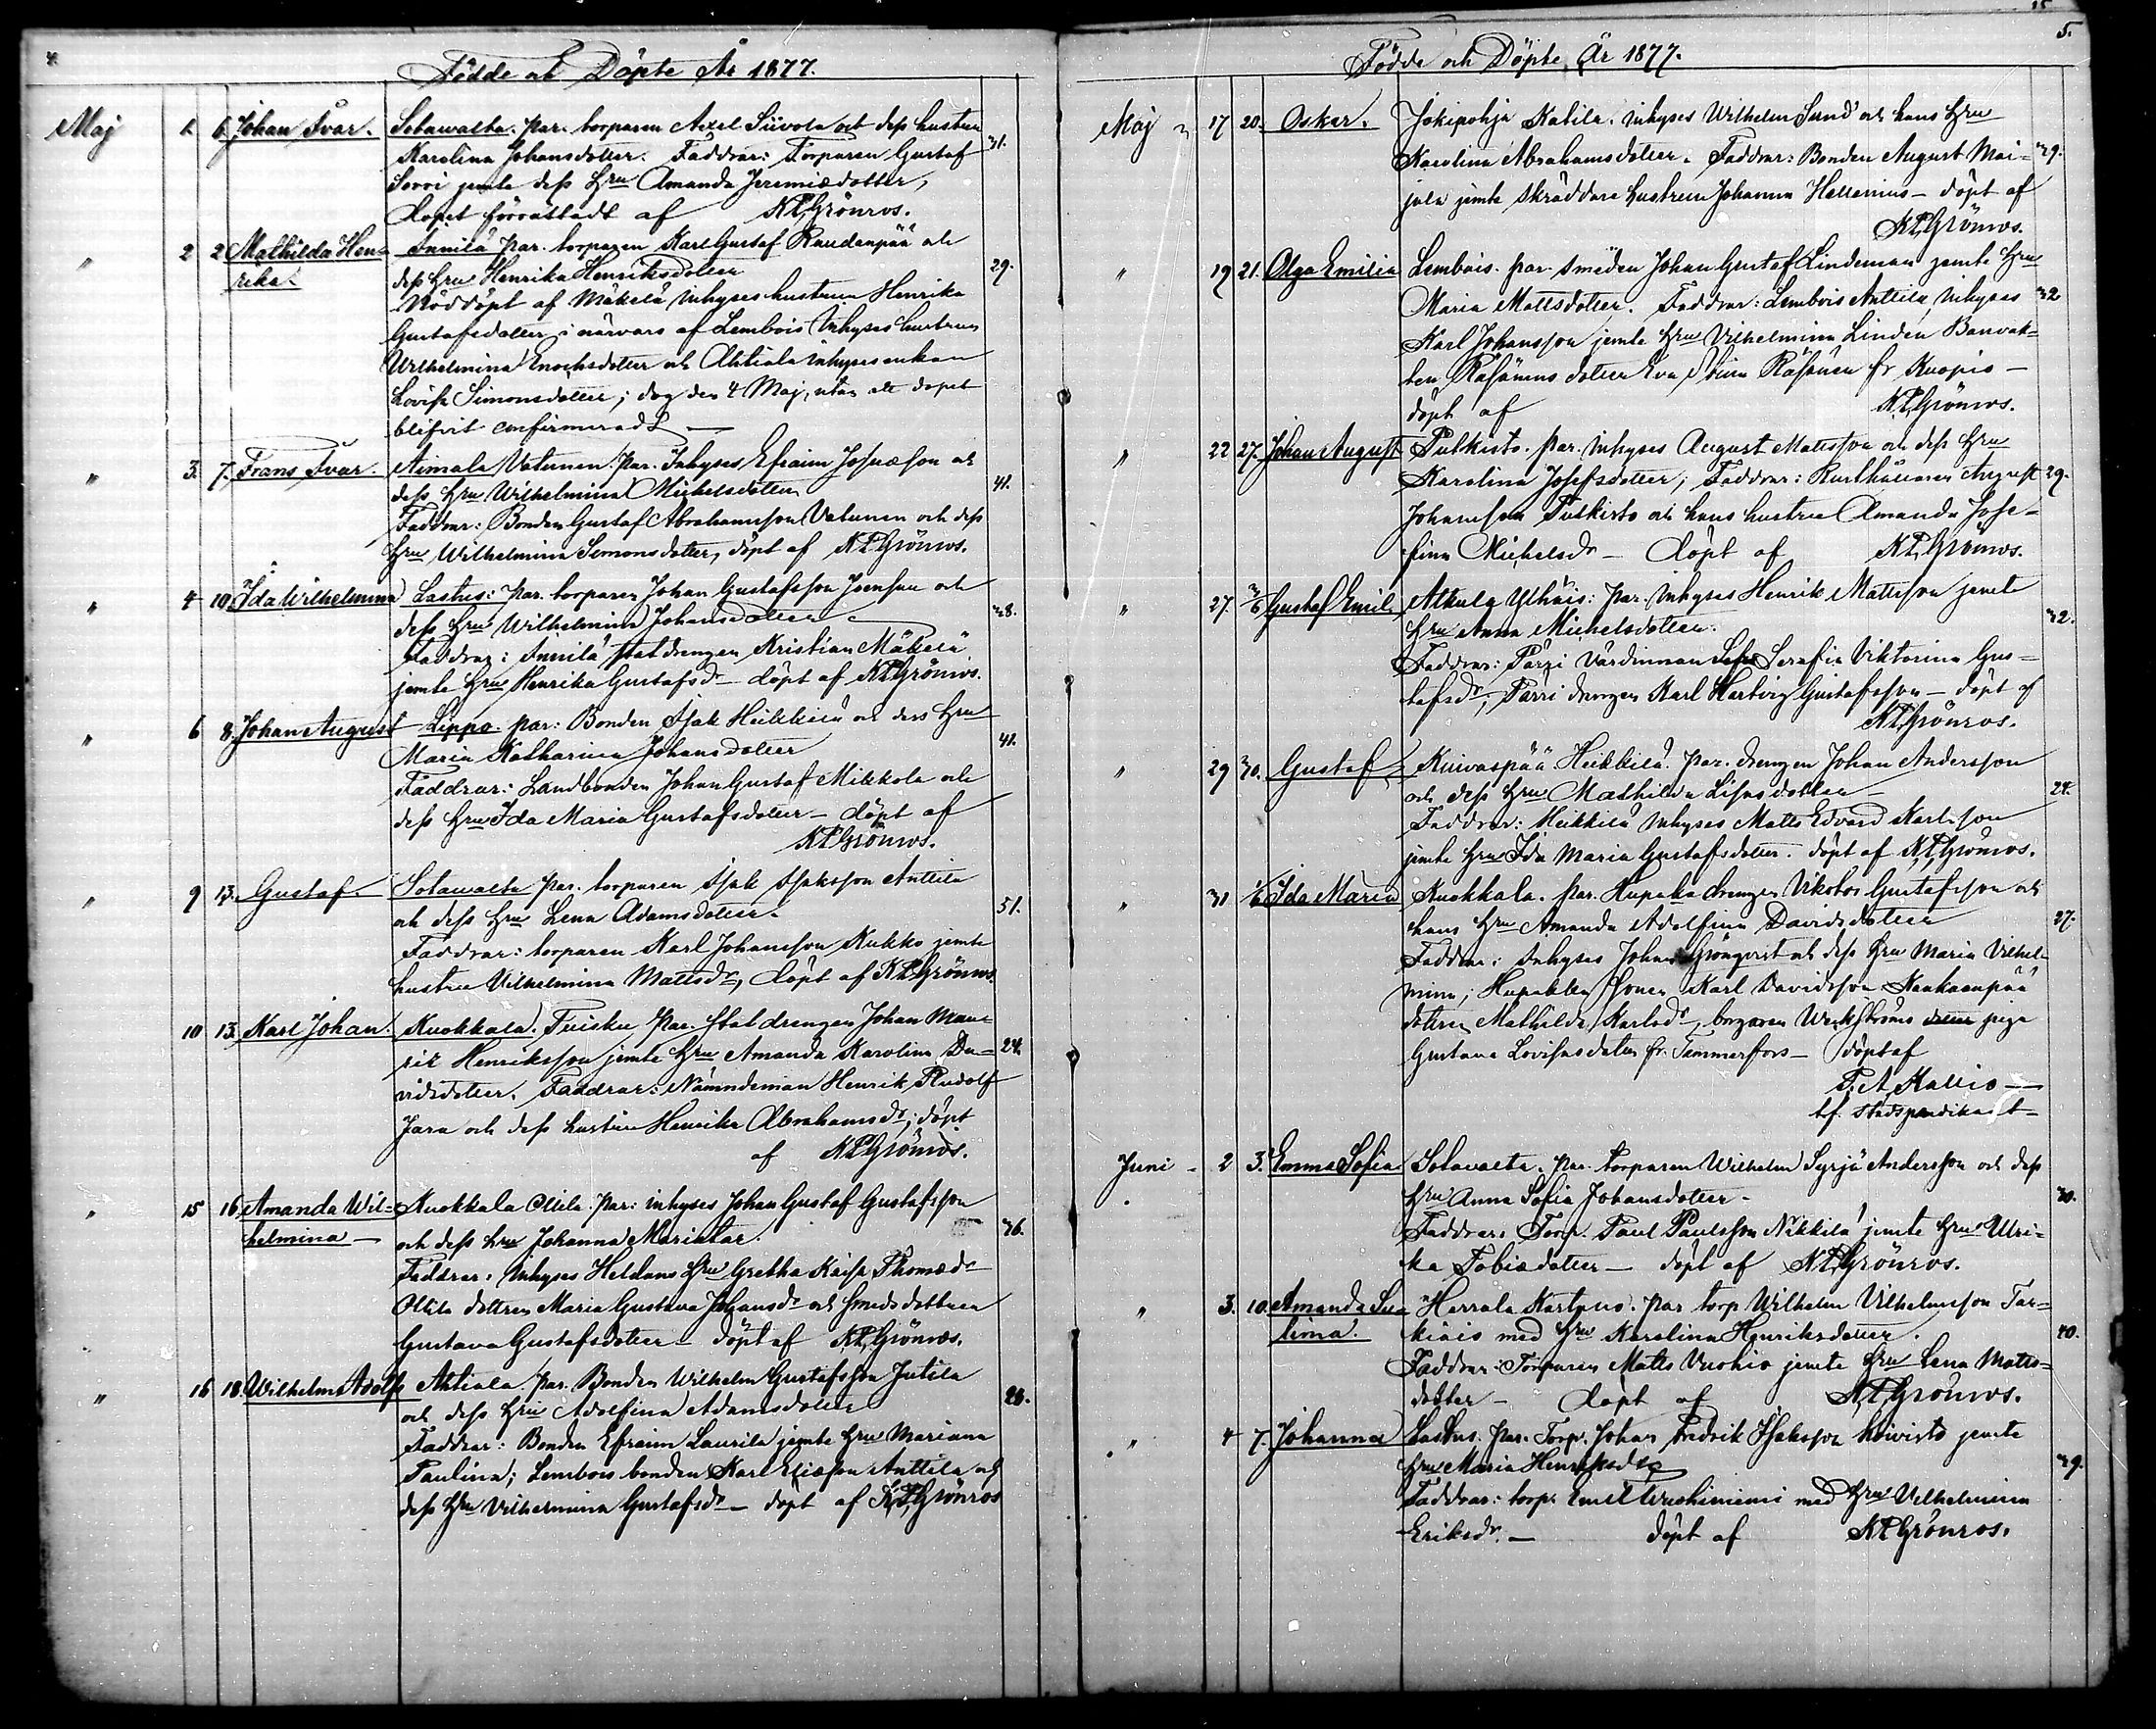 4.
Födde och Döpte År 1877.
Maj 1. 6. Johan Ivar. Sotawalta. par. torparen Axel Siivola och dess hustru 31.
Karolina Johansdotter. Faddrar: Torparen Gustaf
Sorri jemte dess Hru Amanda Jeremiædotter,
dopet förrättadt af KLGrönros.
" 2 2 Mathilda Hen= Innilä par. torparen Karl Gustaf Raudanpää och 29.
rika. dess Hru Henrika Henriksdotter
Nöddöpt af Mäkelä inhyses hustrun Henrika
Gustafsdotter i närvaro af Lembois Inhyses hustrun
Wilhelmina Enochsdotter och Ahtiala inhyses enkan
Lovisa Simonsdotter; dog den 4 Maj, utan att dopet
blifvit confirmeradt —
" 3. 7. Frans Ivar. Aimala Vatunen. Par. Inhyses Efraim Josuæson och 41.
dess Hru Wilhelmina Michelsdotter
Faddrar: Bonden Gustaf Abrahamsson Vatunen och dess
Hru Wilhelmina Simonsdotter, döpt af KLGrönros.
" 4 10. Ida Wilhelmina Lastus: par. torparen Johan Gustafsson och 38.
dess Hru Wilhelmina Johansdotter
Faddrar: Innilä statdrengen Kristian Mäkelä
jemte Hru Henrika Gustafsdr — döpt af KLGrönros.
" 6 8. Johan August Lippo par: Bonden Isak Heikkilä och dess Hru 41.
Maria Katharina Johansdotter
Faddrar: Landbonden Johan Gustaf Mikkola och
dess Hru Ida Maria Gustafsdotter — döpt af
KLGrönros.
" 9 13. Gustaf. Sotawalta par. torparen Isak Isaksson Anttila 51.
och dess Hru Lena Adamsdotter.
Faddrar: torparen Karl Johansson Kukko jemte
hustru Vilhelmina Mattsdr, döpt af KLGrönros.
10 13. Karl Johan. Kuokkala. Tuisku Par. statdrengen Johan Mau= 24.
ritz Henriksson jemte Hru Amanda Karolina Da=
vidsdotter. Faddrar: Nämndeman Henrik Rudolf
Jara och dess hustru Henrika Abrahamsdr, döpt
af KLGrönros.
" 15 16. Amanda Wil= Kuokkala Ollila. par: inhyses Johan Gustaf Gustafsson 36.
helmina — och dess hru Johanna Mariatar.
Faddrar: Inhyses Heldans Hru Gretha Kaisa Thomædr
Ollila dottren Maria Gustava Johansdr och smeds dottren
Gustava Gustafsdotter — döpt af KLGrönros.
" 16 18. Wilhelm Adolf Ahtiala. Par. Bonden Wilhelm Gustafsson Jutila 28.
och dess Hru Adolfina Adamsdotter
Faddrar: Bonden Efraim Laurila jemte Hru Mariana
Paulina; Lembois bonden Karl Eliæson Anttila och
dess Hru Vilhelmina Gustafsdr — döpt af KLGrönros
5.
Födde och Döpte År 1877.
Maj 17 20. Oskar. Jokipohja Katila. inhyses Wilhelm Sund och hans Hru 39.
Karolina Abrahamsdotter. Faddrar: Bonden August Mai=
jala jemte skräddare hustrun Johanna Hellenius — döpt af
KLGrönros.
" 19 21. Olga Emilia Lembois. par. smeden Johan Gustaf Lindeman jemte Hru 32
Maria Mattsdotter. Faddrar: Lembois Anttila Inhyses
Karl Johansson jemte Hru Vilhelmina Lindén Banvak=
ten Räsänens dotter Eva Räsänen fr. Kuopio —
döpt af KLGrönros.
" 22 27. Johan August Pulkisto. par. Inhyses August Mattsson och dess Hru 29.
Karolina Josefsdotter, Faddrar: Rusthållaren August
Johansson Pulkisto och hans hustru Amanda Jose=
fina Michelsdr — döpt af KLGrönros.
" 27. 3/6 Gustaf Emil. Alkula Ylhäis: par. Inhyses Henrik Mattsson jemte 32.
Hru Anna Michelsdotter.
Faddrar: Pärri Värdinnan Serafia Viktorina Gus=
tafsdr, Pärri drengen Karl Hartvig Gustafsson — döpt af
KLGrönros.
" 29 30. Gustaf Kuivaspää Heikkilä. par. drengen Johan Andersson 24.
och dess Hru Mathilda Lisasdotter —
Faddrar: Heikkilä Inhyses Matts Edvard Karlsson
jemte Hru Ida Maria Gustafsdotter. döpt af KLGrönros.
" 31 1/6 Ida Maria Kuokkala. par. Hupaka drengen Viktor Gustafsson och 27.
hans Hru Amanda Adolfina Davidsdotter
Faddrar: Inhyses Johan Grönqvist och dess Hru Maria Vilhel=
mina; Hupakka sonen Karl Davidsson Kankaanpää
dottren Mathilda Karlsdr, bagaren Weckströms piga
Gustava Lovisasdotter fr. Tammerfors — döpt af
F. A. Kallio —
tf. stadspredikant —
Juni 2 3. Emma Sofia Sotavalta. Par. torparen Wilhelm Syrjä Andersson och dess 30.
Hru Anna Sofia Johansdotter —
Faddrar: Torp. Paul Paulsson Nikkilä jemte Hru Ulri=
ka Tobiædotter — döpt af KLGrönros.
" 3. 10. Amanda Se= Herrala Kartpus. par torp Wilhelm Vilhelmsson Tar= 40.
lima. kiais med Hru Karolina Henriksdotter.
Faddrar: Torparen Matts Vuohio jemte Hru Lena Matts=
dotter — döpt af KLGrönros.
" 4 7. Johanna Lastus. par. Torp. Johan Fredrik Isaksson Koivisto jemte 39.
Hru Maria Henriksdr
Faddrar: torp. Emil med Hru Vilhelmina
Eriksdr. — döpt af KLGrönros.